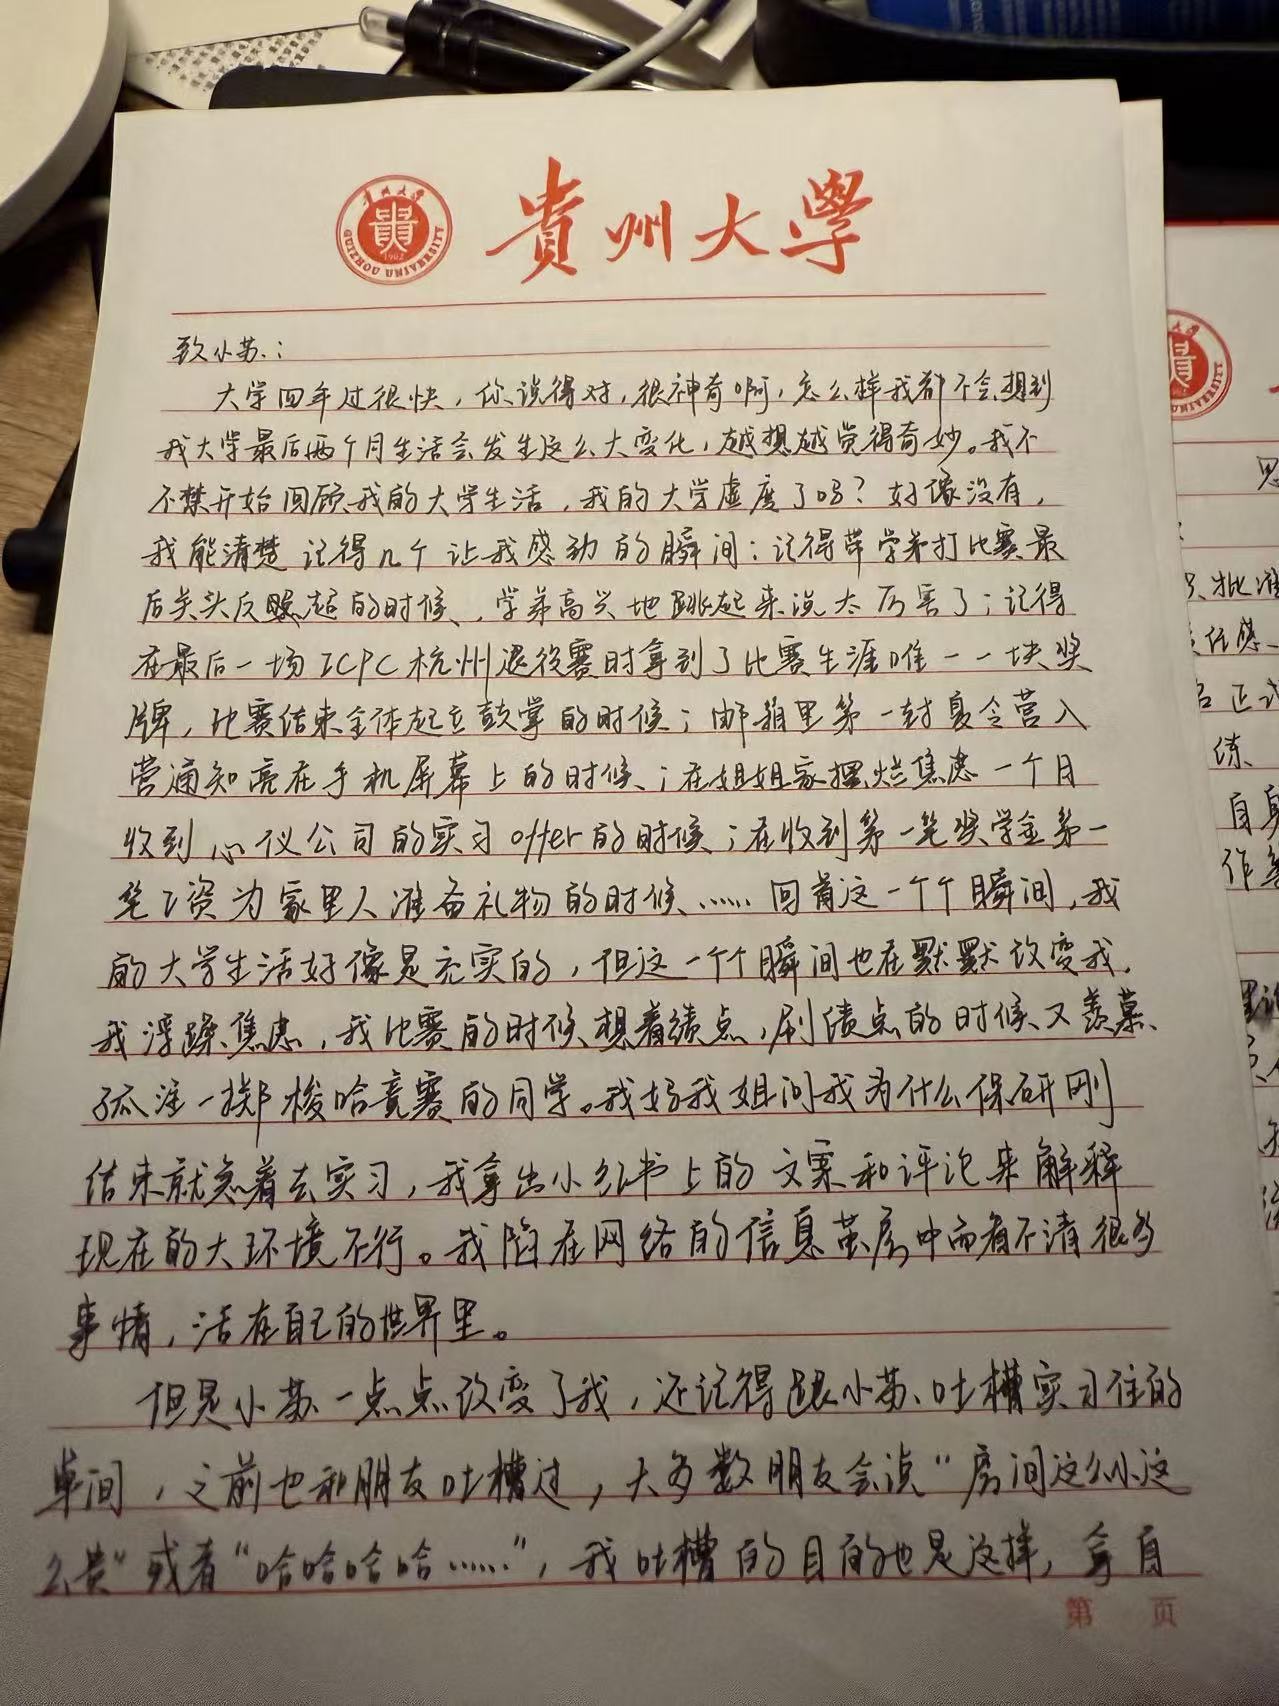 貴州大學
貴州大學
GUIZHOU UNIVERSITY
1902
致小苏:
大学四年过得快,你说得对,很神奇啊,怎么样我都不会想到
我大学最后两个月生活会发生这么大变化,越想越觉得奇妙。我不
不禁开始回顾我的大学生活,我的大学虚度了吗?好像没有,
我能清楚记得几个让我感动的瞬间:记得带学弟打比赛最
后关头反超的时候,学弟高兴地跳起来说太厉害了;记得
在最后一场ICPC杭州退役赛时拿到了比赛生涯唯一一块奖
牌,比赛结束全体起立鼓掌的时候;邮箱里第一封夏令营入
营通知亮在手机屏幕上的时候;在姐姐家摆烂焦虑一个月
收到心仪公司的实习offer的时候;在收到第一笔奖学金第一
笔工资为家里人准备礼物的时候……回首这一个个瞬间,我
的大学生活好像是充实的,但这一个个瞬间也在默默改变我,
我浮躁焦虑,我比赛的时候想着绩点,刷绩点的时候又羡慕
孤注一掷梭哈竞赛的同学。我妈我姐问我为什么保研刚
结束就急着去实习,我拿出小红书上的文案和评论来解释
现在的大环境不行。我陷在网络的信息茧房中而看不清很多
事情,活在自己的世界里。
但是小苏一点点改变了我,还记得跟小苏吐槽实习住的
单间,之前也和朋友吐槽过,大多数朋友会说“房间这么小这
么贵”或者“哈哈哈哈……”,我吐槽的目的也是这样,拿自
第 页